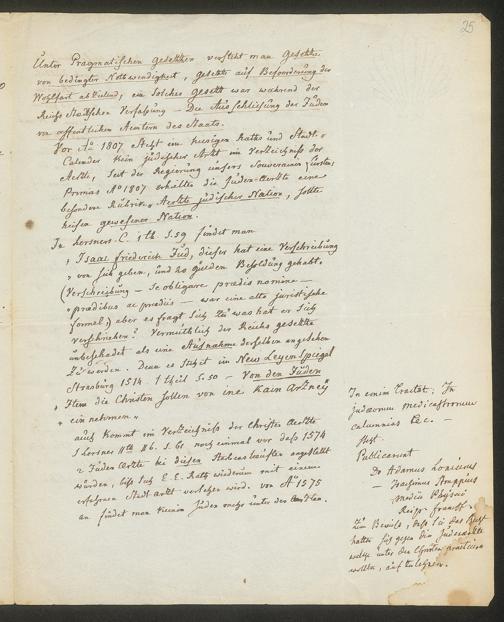 25
Unter Pragmatischen gesetzen versteht man Gesetze
von bedingter Nothwendigkeit, gesetze auf Beforderung der
Wohlfart abzielend, ein solches gesetz war während der
Reichs Städtschen Verfassung – Die Ausschliesung der Juden
von oeffentlichen Aemtern des Staats.
Vor Ao 1807 steht im hiesigen Raths und Stadt-
Calender kein jüdischer Arzt im Verzeichniss der
Aerzte, Seit der Regierung unsers Souverainen Fürsten
Primas Ao 1807 erhielte die Juden-Aerzte eine
besondere Rubrik, Aerzte jüdischer Nation, sollte
heisen gewesener Nation.
In Lersners C. 1 th. S. 59 findet man
„Isaac friederich Jud, dieser hat eine Verschreibung
„von sich geben, und 20 gulden Besoldung gehabt.
(Verschreibung – Se obligare praedis nomine –
„praedibus ac praediis – war eine alte juristische
formel) aber es fragt sich zu was hat er sich
verschrieben? Vermuthlich der Reichs gesetze
unbeschadet als eine Ausnahme derselben angesehen
zu werden. Denn es stehet im New Leyen Spiegel
Strasburg 1514. 1 theil S. 50 – Von den Juden
„Item die Christen sollen von ine kain Artzney
„ein nehmen.“
auch kommt im Verzeichniss der Christen Aerzte
S Lersner IIth. B 6. S. 61 noch einmal vor dass 1574
2 Juden Aerzte bei diesen Sterbensläuften angestellt
würden, biss sich E. E. Rath wiederum mit einem
erfahrnen Stadt arzt versehen wird. von Ao 1575
an findet man keinen Juden mehr unter den Aerzten.
In einem Tractat: In
judaeorum medicastrorum
calumnias &c. –
Publicarunt
Dr Adamus Lonicerus
– Joachimus Struppius
Medici Physici
Reip. francof.
Zum Beweiss, dass sie das Recht
hatten sich gegen die Judenaerzte
welche unter den Christen practiciren
wollten, aufzulehnen.